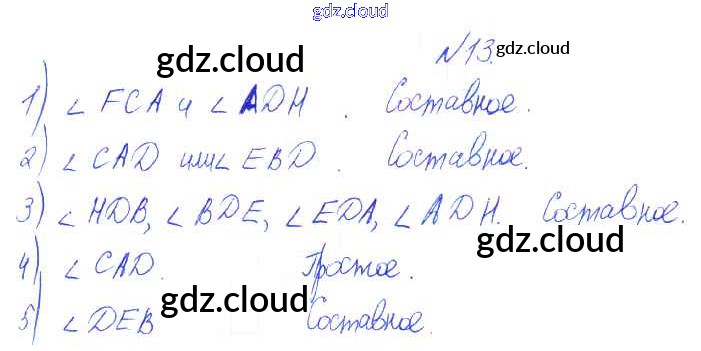 gdz.cloud
№13. gdz.cloud
gdz.cloud
1) ∠ FCA и ∠ ADH. Составное.
2) ∠ CAD или ∠ EBD. Составное.
3) ∠ HDB, ∠ BDE, ∠ EDA, ∠ ADH. Составное.
gdz.cloud
4) ∠ CAD. Простое.
gdz.cloud
5) ∠ DEB Составное.